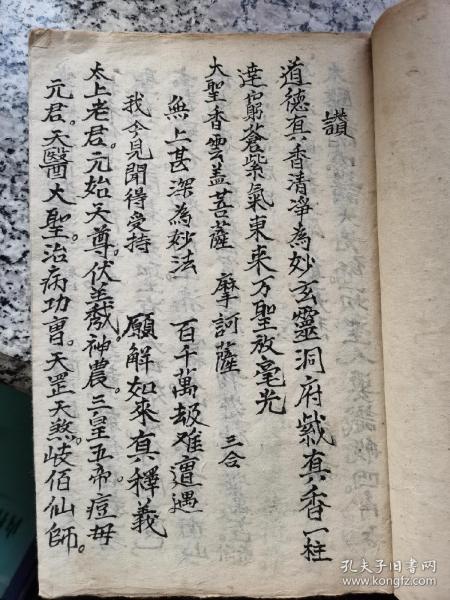 讃
道德真香清净為妙玄靈洞府爇真香一柱
達窮蒼紫氣東来万聖放毫光
大聖香雲盖菩薩 摩訶薩 三合
無上甚深為妙法 百千萬刼难遭遇
我今見聞得受持 願解如來真釋義
太上老君。元始天尊。伏羲。神農。三皇五帝。痘毋
元君。天醫大聖。治病功曹。天罡天煞。岐伯仙師。
孔夫子旧书网
www.kongfz.com